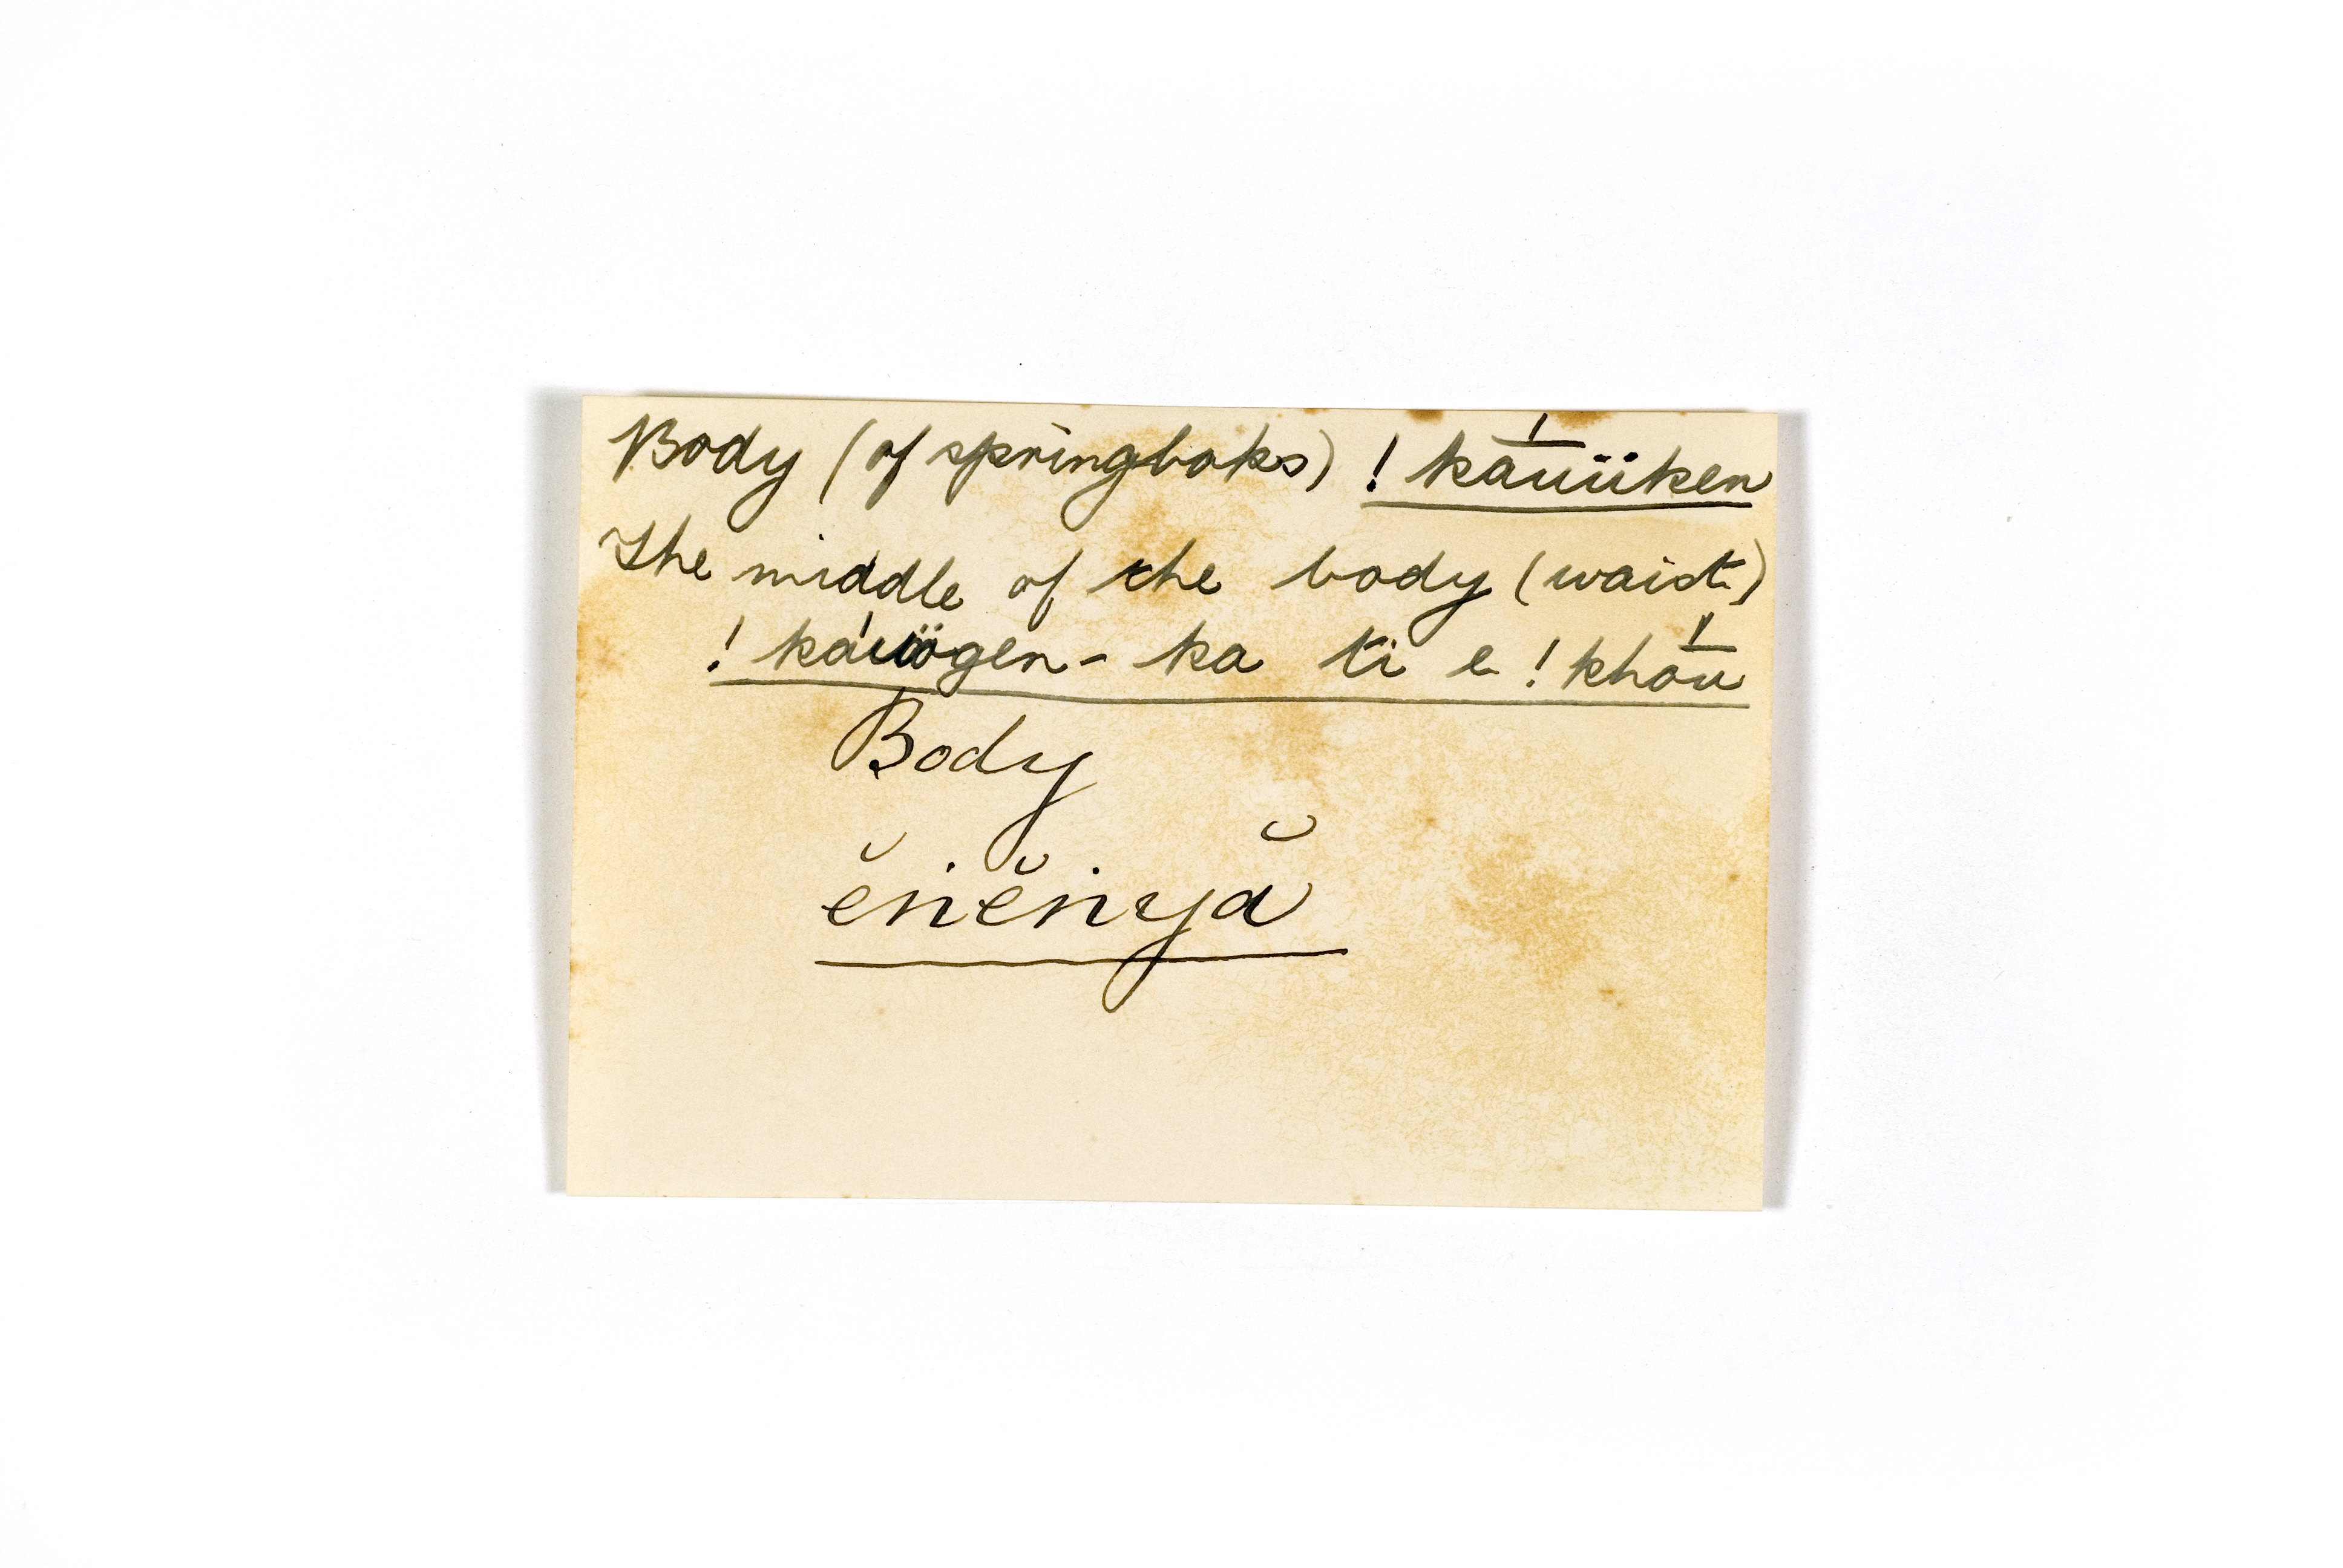 Body (of springboks) ! kā́uüken
The middle of the body (waist)
! káuögen - ka ti e ! khā́u
Body
ĕnĕnyă